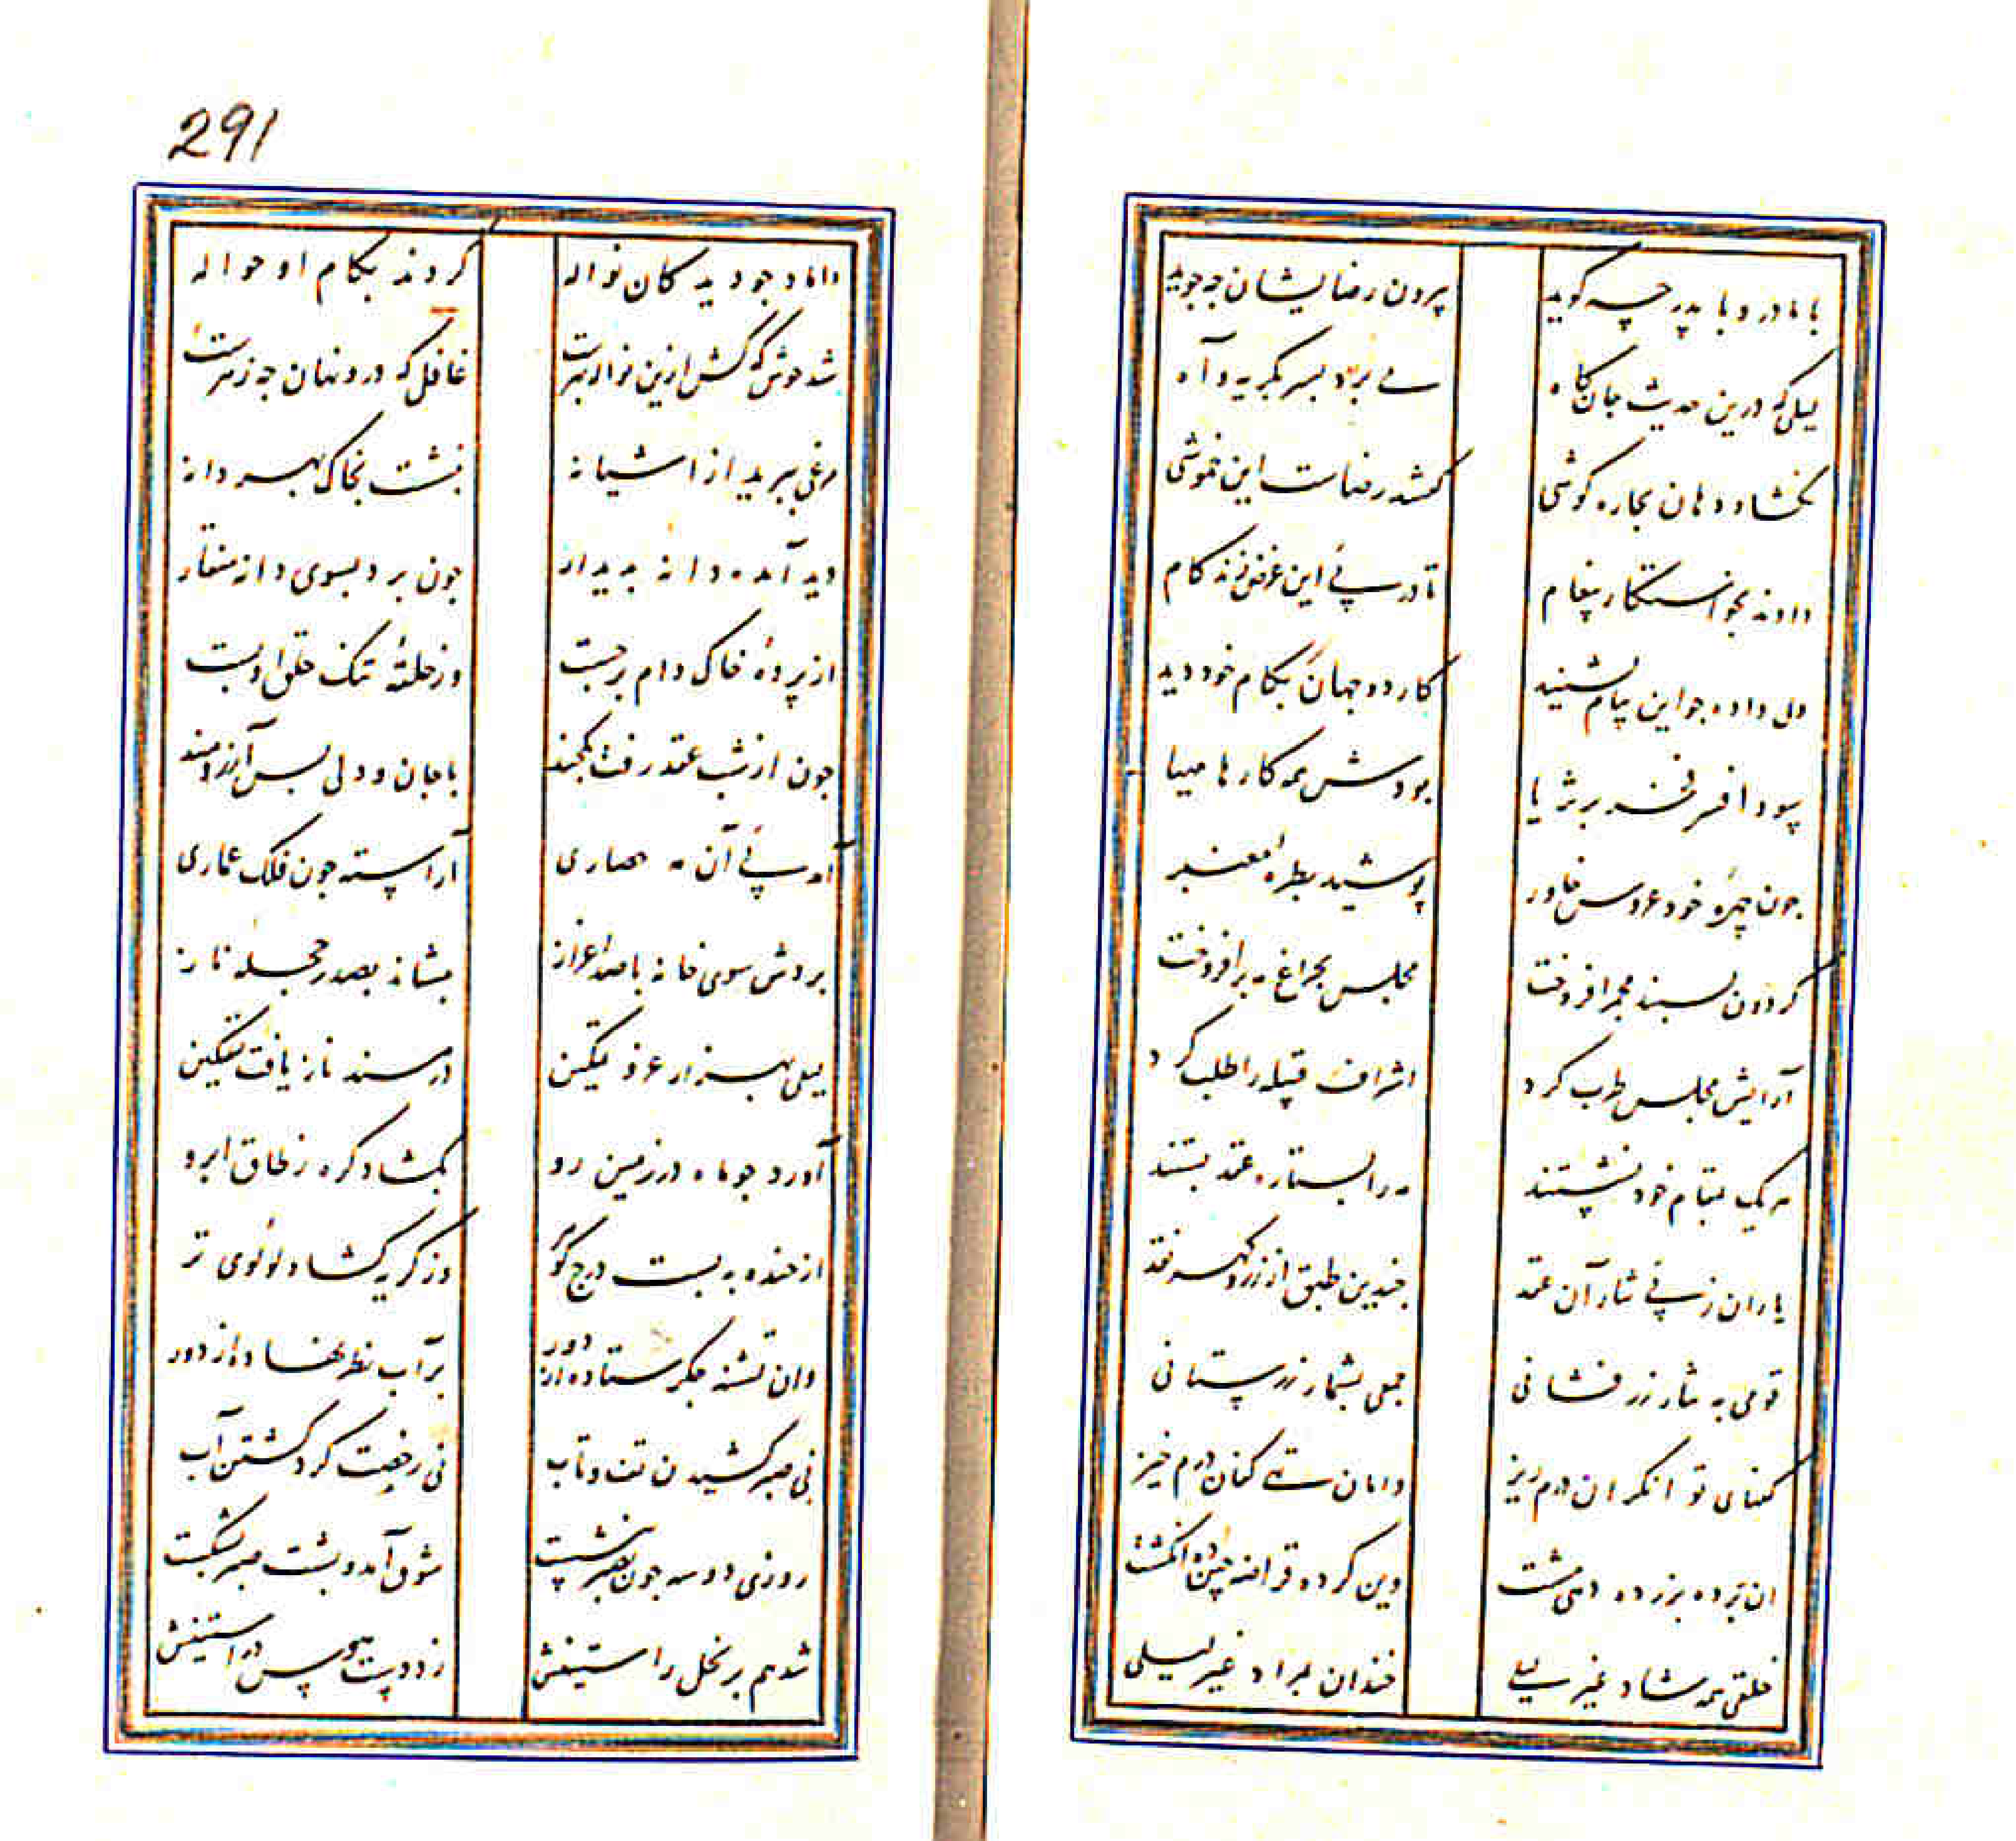 با مادر و با پدر چه گوید بیرون رضایشان چه جوید
لیلی که درین حدیث جان کاه می برد بسر بگریه و آه
نگشاد دهان بچاره کوشی گم شد رضاست این خموشی
دادند بخواستکار پیغام تا در پی این غرض زند کام
دل داده جو این پیام بشنید کار دو جهان بکام خود دید
سود افسر بر ثریا بودش همه کارها مهیا
جون چهره خود عروس خاور پوشید بطره معنبر
کردون بسپند مجمر افروخت مجلس بجراغ مه برافروخت
آرایش مجلس طرب کرد اشراف قبیله را طلب کرد
هر یک بمقام خود نشستند مه را بستاره عقد بستند
یاران ز پی نثار آن عقد جندین طبق از زر و کهر نقد
قومی به نثار زر فشانی جمعی بشمار زر ستانی
کفهای توانکران درم ریز دامان تهی کفان درم خیز
ان برده بزر ده دهی مشت وین کرده قراضه چین ده انکشت
خلقی همه شاد غیر لیلی خندان بمراد غیر لیلی
291
داماد جو دید کان نواله کردند بکام او حواله
شد خوش که کشش ازین نواله غافل که درو نهان جه زهرست
مرغی ببرید از اشیانه بنشست بخاک بهر دانه
دید آمده دانه بدیدار جون برد بسوی دانه منقار
از پرده خاک دام برجست وز حلقه تنک حلق او بست
جون از شب عقد رفت یکچند با جان و دلی بس آرزومند
آمد پی آن مه حصاری آراسته جون فلک عماری
بردش سوی خانه با صد اعزاز بنشاند بصدر حجله ناز
لیلی بهزار عز و تمکین در مسند ناز یافت تسکین
آورد جو ماه در زمین رو نکشاد کره ز طاق ابرو
از خنده به بست درج کوهر وز کریه کشاد لولوی تر
وان تشنه جکر ستاده از دور بر آب نظر نهاده از دور
نی صبر کشیدن تف و تاب نی رخصت کرد کشتن آب
روزی دو سه جون بصبر بنشست شوق آمد و پشت صبر بشکست
شد هم بر نخل راستینش زد دست هوس در استینش